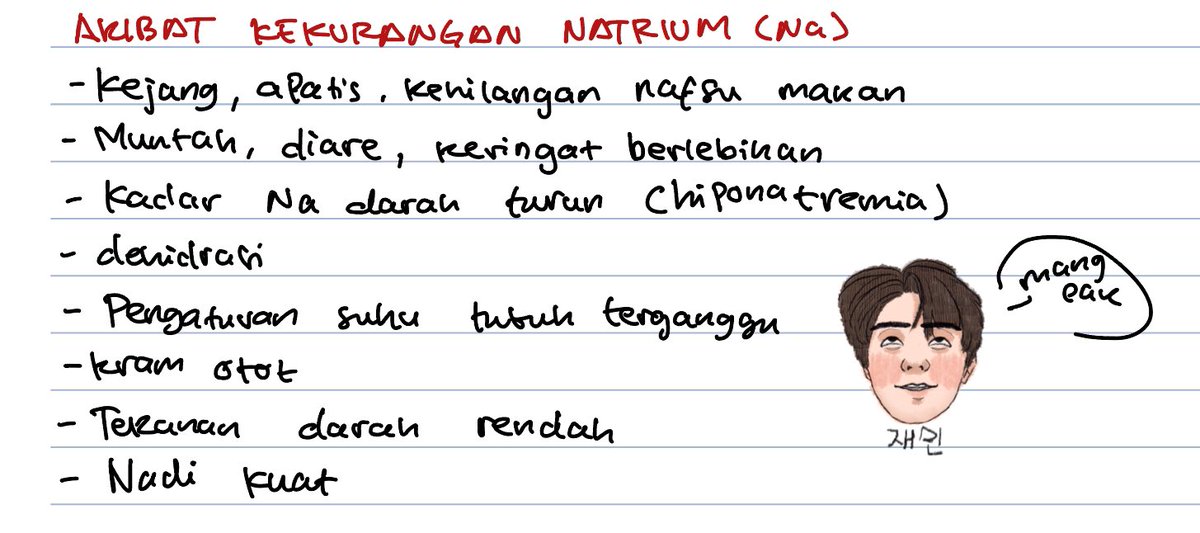 AKIBAT KEKURANGAN NATRIUM (Na)
- Kejang, apatis, kehilangan nafsu makan
- Muntah, diare, keringat berlebihan
- Kadar Na darah turun (hiponatremia)
- dehidrasi
- Pengaturan suhu tubuh terganggu
- kram otot
- Tekanan darah rendah
- Nadi kuat
mang
eak
재민